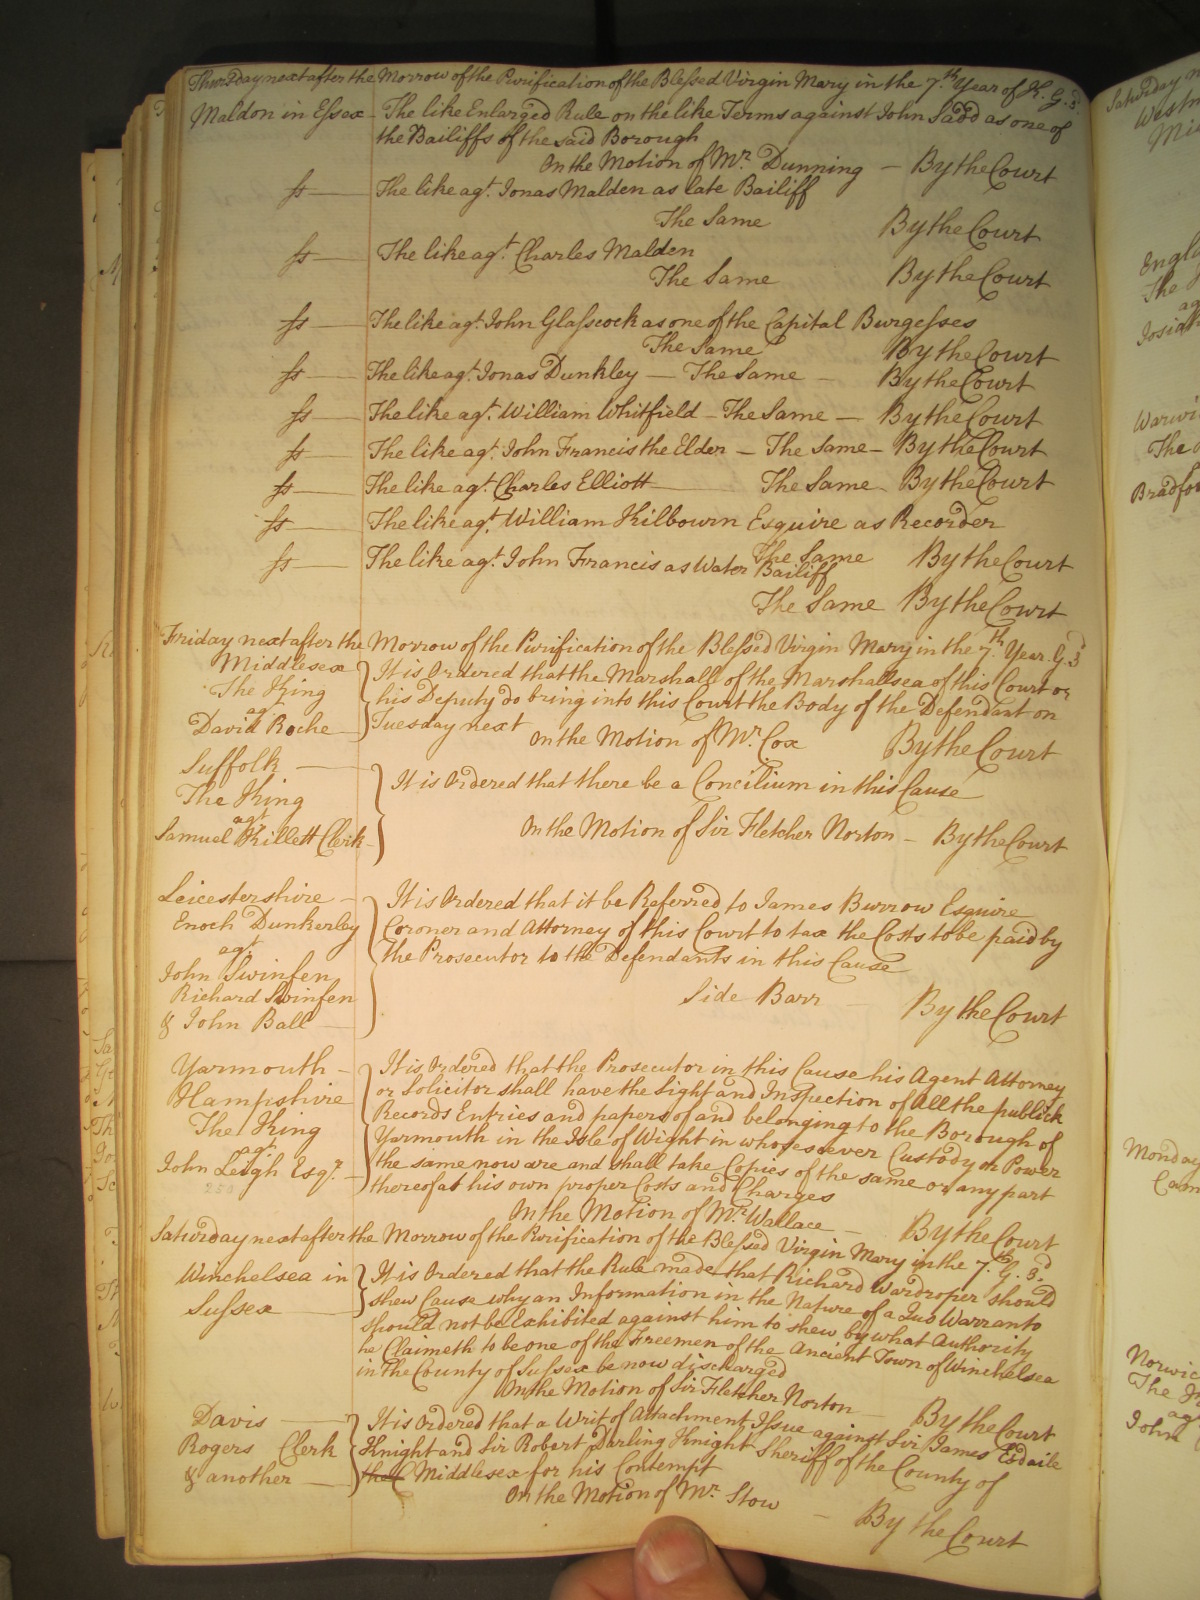 Thursday next after the Morrow of the Purification of the Blessed Virgin Mary in the 7.th Year of K. G. 3.d
Maldon in Essex - The like Enlarged Rule on the like Terms against John Sadd as one of
the Bailiffs of the said Borough
On the Motion of Mr. Dunning - By the Court
ss - The like agt. Jonas Malden as late Bailiff
The Same By the Court
ss - The like agt. Charles Malden
The Same By the Court
ss - The like agt. John Glasscock as one of the Capital Burgesses
The Same By the Court
ss - The like agt. Jonas Dunkley - The Same - By the Court
ss - The like agt. William Whitfield - The Same - By the Court
ss - The like agt. John Francis the Elder - The Same - By the Court
ss - The like agt. Charles Elliott The Same By the Court
ss - The like agt. William Kilbourn Esquire as Recorder
The Same By the Court
ss - The like agt. John Francis as Water Bailiff
The Same By the Court
Friday next after the Morrow of the Purification of the Blessed Virgin Mary in the 7.th Year G. 3.d
Middlesex
The King
agt
David Roche
It is Ordered that the Marshall of the Marshallsea of this Court or
his Deputy do bring into this Court the Body of the Defendant on
Tuesday next
On the Motion of Mr. Cox By the Court
Suffolk
The King
agt
Samuel Killett Clerk
It is Ordered that there be a Concilium in this Cause
On the Motion of Sir Fletcher Norton - By the Court
Leicestershire
Enoch Dunkerley
agt
John Swinfen
Richard Swinfen
& John Ball
It is Ordered that it be Referred to James Burrow Esquire
Coroner and Attorney of this Court to tax the Costs to be paid by
the Prosecutor to the Defendants in this Cause
Side Barr - By the Court
Yarmouth -
Hampshire
The King
agt
John Leigh Esqr.
It is Ordered that the Prosecutor in this Cause his Agent Attorney
or Solicitor shall have the Sight and Inspection of All the publick
Records Entries and papers of and belonging to the Borough of
Yarmouth in the Isle of Wight in whosesoever Custody or Power
the same now are and shall take Copies of the same or any part
thereof at his own proper Costs and Charges
On the Motion of Mr. Wallace - By the Court
Saturday next after the Morrow of the Purification of the Blessed Virgin Mary in the 7.th G. 3.d
Winchelsea in
Sussex
It is Ordered that the Rule made that Richard Wardroper should
shew Cause why an Information in the Nature of a Quo Warranto
should not be Exhibited against him to shew by what Authority
he Claimeth to be one of the Freemen of the Ancient Town of Winchelsea
in the County of Sussex be now discharged
On the Motion of Sir Fletcher Norton - By the Court
Davis
Rogers Clerk
& another
It is Ordered that a Writ of Attachment Issue against Sir James Esdaile
Knight and Sir Robert Darling Knight Sheriff of the County of
the C Middlesex for his Contempt
On the Motion of Mr. Stow - By the Court
Saturday
Westm
Mi
Engl
The
ag
Josiah
Warwi
The
Bradfor
Monday
Cam
Norwic
The
ag
John